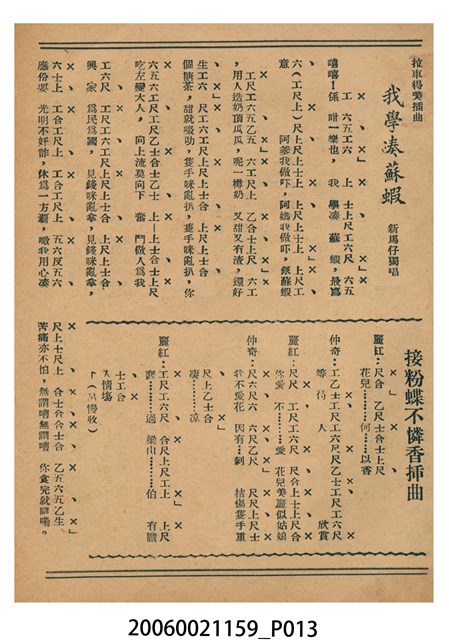 拉車得美插曲
我學湊蘇蝦
新馬仔獨唱
工 六五工六 上 士上尺工六尺 六五
嘻嘻！係 咁一樂也， 我 學湊 蘇 蝦，最寫
六（工尺上）尺上尺上士上 尺上尺上 上尺工尺
意 阿爹我做吓，阿媽我做吓，銀蘇蝦
工尺工六五乙五 六工尺上 乙合士上尺 六工
，用人造奶頂瓜瓜，呢一樽奶 又甜又有渣，還好
生工六 尺工六工尺上尺上士合 上尺上尺上士合
個糖茶，甜就吸叻，隻手咪亂扒，隻手咪亂扒，你
六五六工尺工尺乙士合士乙士 上—上士合士上尺
吃左變大人，向上流莫向下 奮 鬥做人爲我
工六尺 工尺工六工尺上尺上士合 上尺上尺上士合
興 家 爲民爲國，見錢咪亂拿，見錢咪亂拿，
六士上 工合工尺上 工合工尺上 五六五五六
應份要 光明不奸詐，休爲一方霸，噉我用心湊
尺上十尺上 合士合合士合 乙五六五乙生
苦痛亦不怕，無謂嘈無謂嘈 你食完就瞓嘞。
接粉蝶不憐香揷曲
麗紅：尺合 乙尺士合士上尺
花兒………何……以香
仲奇：工乙士工尺工六尺尺工尺工六尺
等 待 人 欣賞
麗紅：尺尺 工尺工六尺 尺合上士上尺合
你愛 不………愛 花兒美麗似姑娘
仲奇：尺六尺六 六尺乙尺 尺尺上尺士
我不愛花 因有…刺 拮傷隻手重
尺上乙士合
凄………凉
麗紅：工尺工六工尺 合尺上尺工上 上尺
對………過 梁山………伯 有瞻
士工合
人情塲
「（吊慢收）
20060021159_P013